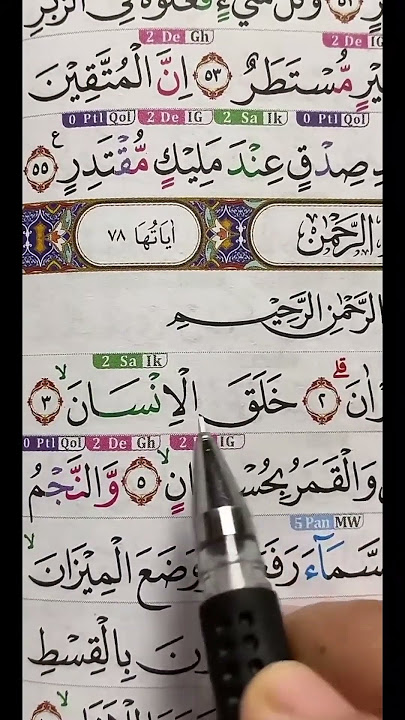 وَكُلُّ شَيْءٍ فَعَلُوهُ فِى الزُّبُرِ ٥٢
2 De Gh 2 De IG
مُّسْتَطَرٌ ٥٣ اِنَّ الْمُتَّقِيْنَ
0 Ptl Qol 2 De IG 2 Sa Ik 0 Ptl Qol
صِدْقٍ عِنْدَ مَلِيْكٍ مُّقْتَدِرٍ ٥٥
الرَّحْمٰن اٰيَاتُهَا ٧٨
الرَّحْمٰنِ الرَّحِيْمِ
2 Sa Ik
٢ خَلَقَ الْاِنْسَانَ ٣
0 Ptl Qol 2 De Gh IG
وَالْقَمَرُ ٥ وَّالنَّجْمُ
5 Pan MW
الْمِيْزَانَ
بِالْقِسْطِ